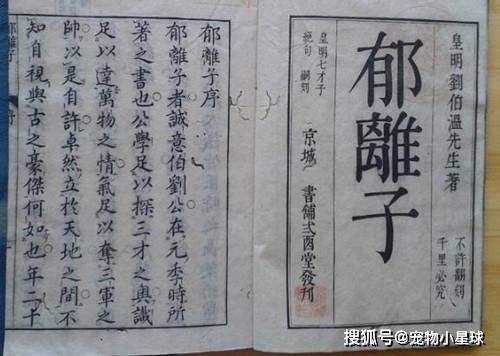 皇明劉伯溫先生著
郁離子
皇明七才子
絶句 嗣刻
京城 書舖弍酉堂發刊
不許翻刻
千里必究
郁離子序
郁離子者誠意伯劉公在元季時所
著之書也公學足以探三才之奧識
足以達萬物之情氣足以奪三軍之
帥以是自許卓然立於天地之間不
知自視與古之豪傑何如也年二十
郁離子
序
搜狐号@宠物小星球